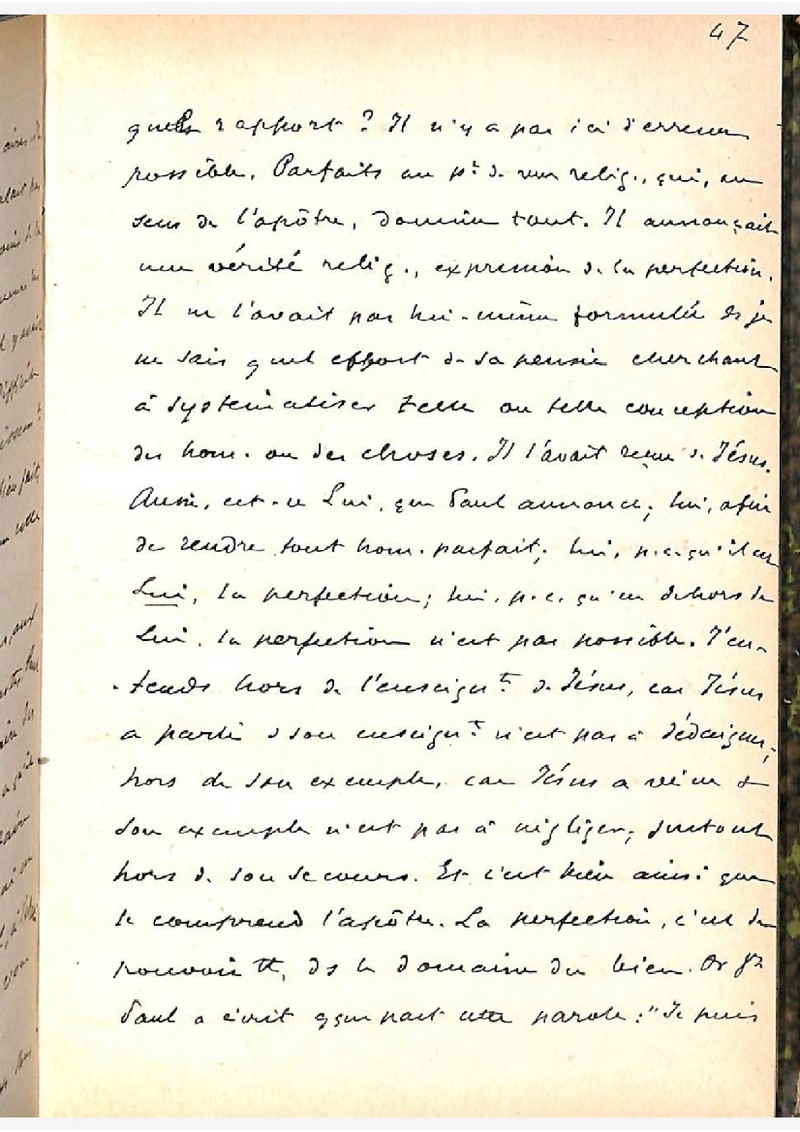 47
quels rapport ? Il n'y a pas ici d'erreur
possible. Parfaits au pt de vue relig., qui, au
sens de l'apôtre, domine tout. Il annonçait
une vérité relig., expression de la perfection.
Il ne l'avait pas lui-même formulée ds je
ne sais quel effort de sa pensée cherchant
à systématiser telle ou telle conception
des hom. ou des choses. Il l'avait reçue de Jésus.
Aussi, est-ce Lui, que Paul annonce ; lui, afin
de rendre tout hom. parfait ; lui, p.c.qu'il est
Lui, la perfection ; lui, p.c.qu'en dehors de
Lui, la perfection n'est pas possible. J'en-
tends hors de l'enseignt de Jésus, car Jésus
a parlé & son enseignt n'est pas à dédaigner ;
hors de son exemple, car Jésus a vécu &
son exemple n'est pas à négliger ; surtout
hors de son secours. Et c'est bien ainsi que
le comprend l'apôtre. La perfection, c'est de
pouvoir tt, ds le domaine du bien. Or
Paul a écrit qque part cette parole : "Je puis